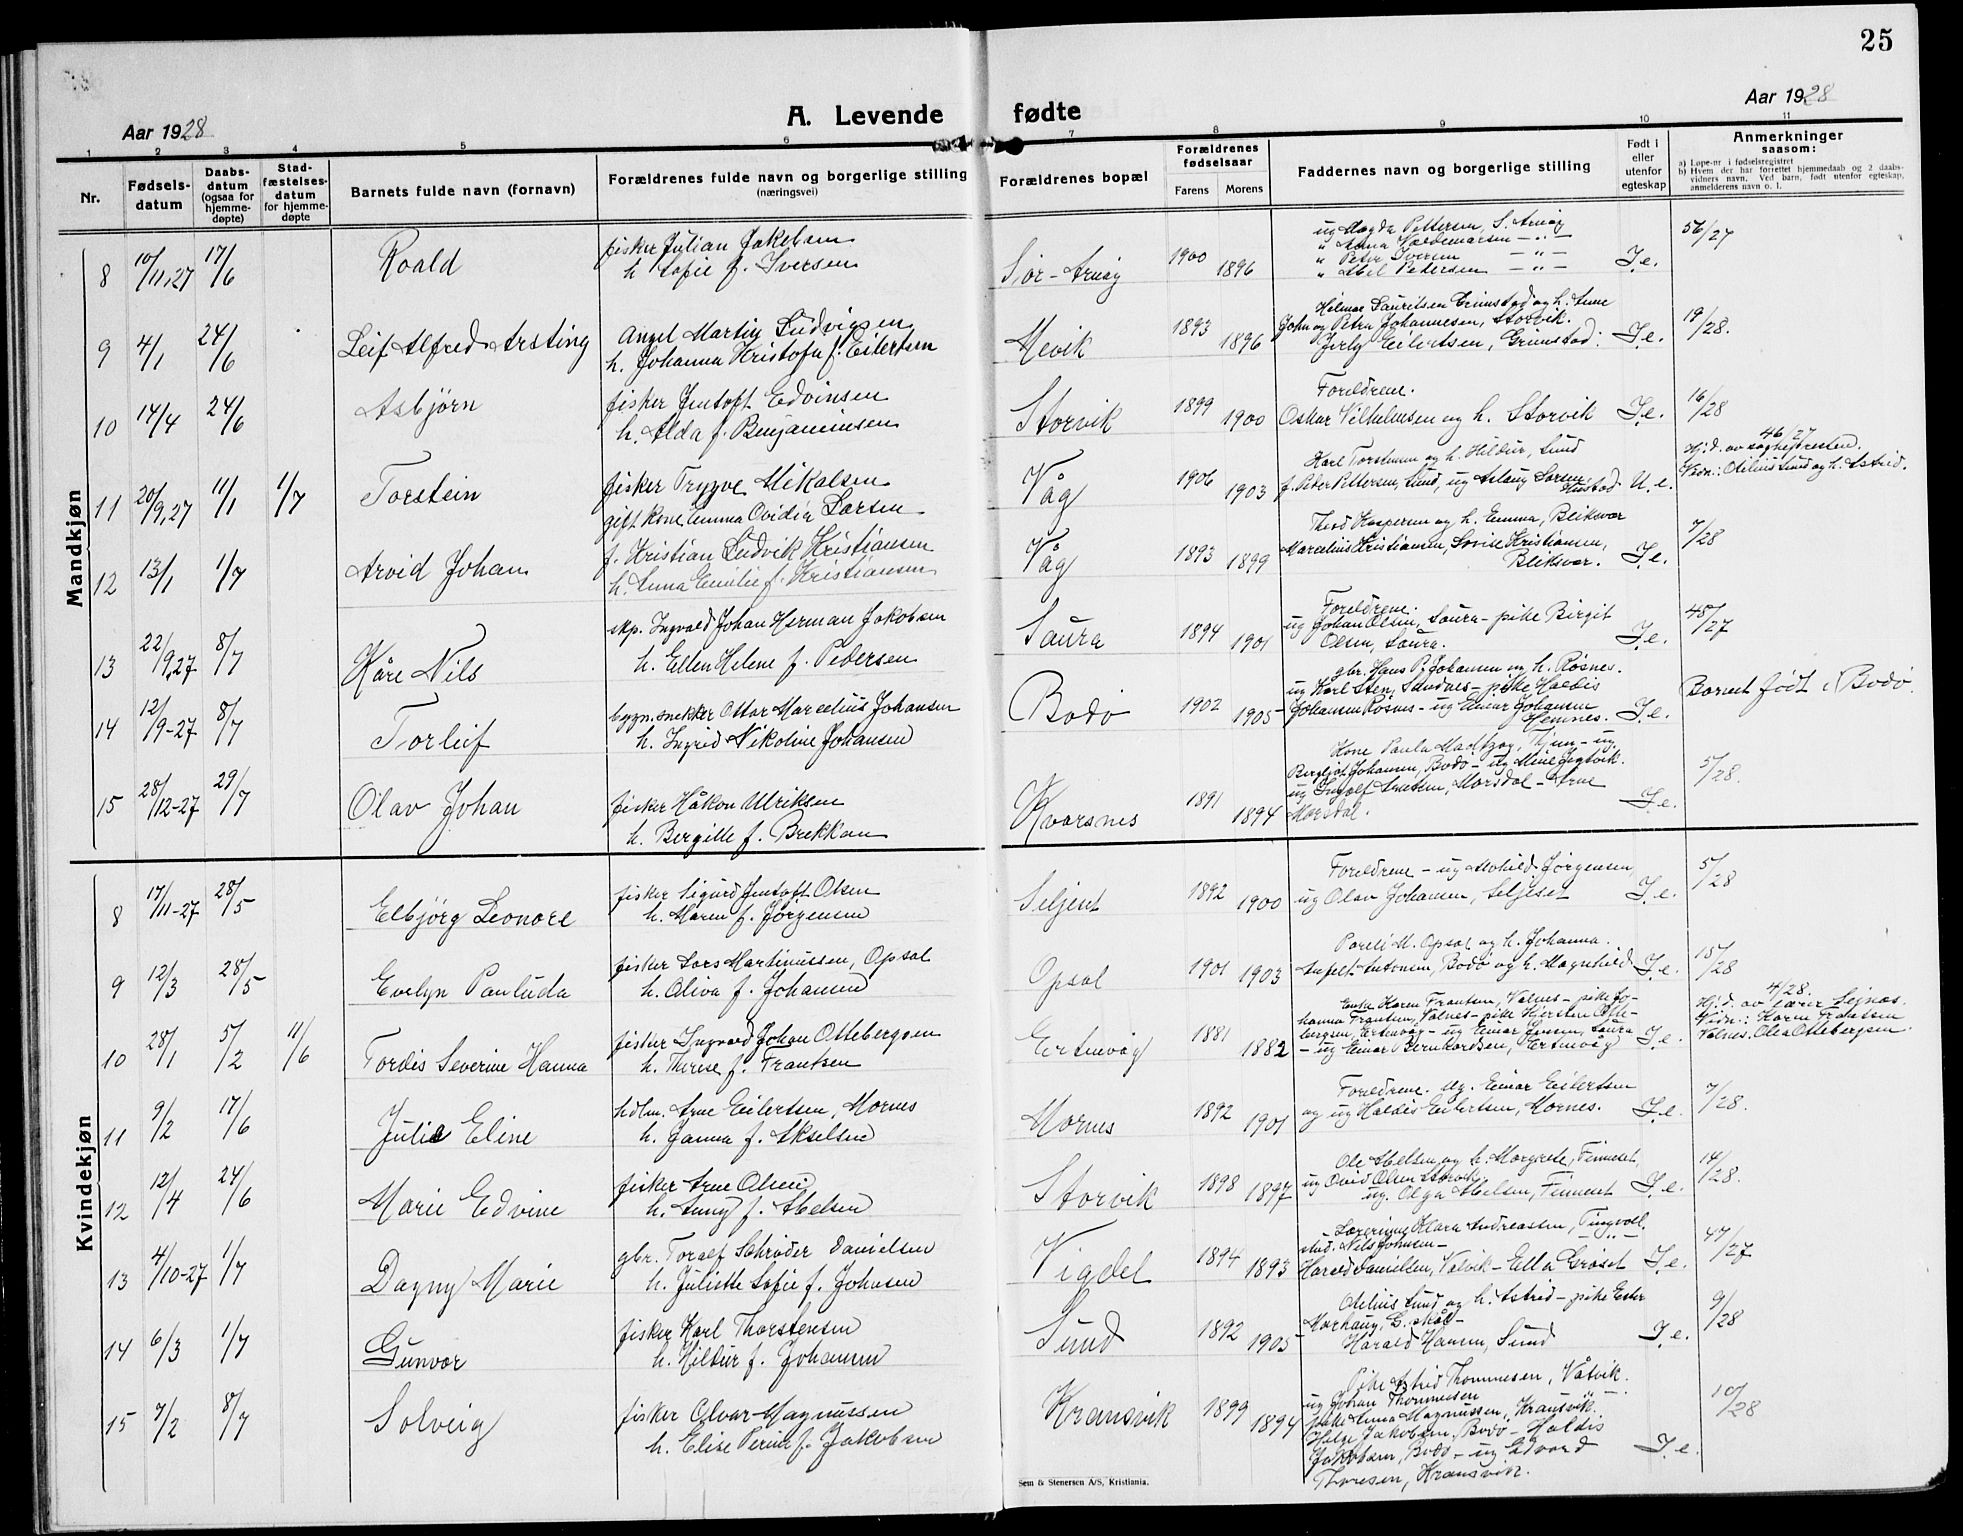 25
Aar 1928
A. Levende fødte
Aar 1928
1 2 3 4 5 6 7 8 9 10 11
Nr.
Fødsels-datum
Daabs-datum (ogsaa for hjemme-døpte)
Stad-fæstelses-datum for hjemme-døpte
Barnets fulde navn (fornavn)
Forældrenes fulde navn og borgerlige stilling (næringsvei)
Forældrenes bopæl
Forældrenes fødselsaar
Farens Morens
Faddernes navn og borgerlige stilling
Født i eller utenfor egteskap
Anmerkninger saasom:
a) Løpe-nr i fødselsregistret
b) Hvem der har forrettet hjemmedaab og 2 daabs-vidners navn. Ved barn, født utenfor egteskap, anmelderens navn o. l.
Mandkjøn
8 10/11,27 17/6 Roald
fisker Julian Jakobsen
h. Sofie f. Iversen
Sør-Arnøy 1900 1896
ug Magda Pettersen, S. Arnøy
" Anna Valdemarsen — " —
" Petra Iversen — " —
" Abel Pedersen — " —
I.e. 56/27
9 4/1 24/6 Leif Alfred Arsting
Angel Martin Ludvigsen
h. Johanna Kristofa f. Eilertsen
Mevik 1893 1896
Hilmar Lauritsen Grimstad og h. Anne
John og Petra Johannesen, Storvik.
Jerly Eilertsen, Grimstad.
I.e. 19/28.
10 14/4 24/6 Asbjørn
fisker Jentoft Edvinsen
h. Alda f. Benjaminsen
Storvik 1899 1900
Foreldrene.
Oskar Vilhelmsen og h. Storvik
I.e. 16/28
11 20/9,27 11/1 1/7 Torstein
fisker Trygve Mikalsen
gift kone Emma Ovidia Larsen
Våg 1906 1903
Karl Torstensen og h. Hildur, Sund
f. Peter Pettersen, Sund, ug Aslaug Larsen, Hustad
U.e. 46/27
Hj.d. av sognepresten.
Vidn.: Otelius Sund og h. Astrid.
12 13/1 1/7 Arvid Johan
f. Kristian Ludvik Kristiansen
h. Anna Emilie f. Kristiansen
Våg 1893 1899
Theod Kaspersen og h. Emma, Bliksvær
Marcelius Kristiansen, Lovise Kristiansen,
Bliksvær.
I.e. 7/28
13 22/9,27 8/7 Kåre Nils
skp. Ingvald Johan Herman Jakobsen
h. Ellen Helene f. Pedersen
Saura 1894 1901
Foreldrene.
ug Johan Olsen, Saura - pike Birgit
Olsen, Saura.
I.e. 48/27
14 12/9-27 8/7 Torleif
bygn.snekker Ottar Marcelius Johansen
h. Ingrid Nikoline Johansen
Bodø 1902 1905
gbr. Hans P. Johansen og h. Røsnes.
ug Karl Sten, Sandnes - pike Haldis
Johansen Røsnes - ug Einar Johansen
Hemnes.
I.e. Barnet født i Bodø
15 28/12-27 29/7 Olav Johan
fisker Håkon Ulriksen
h. Bergitte f. Brekkan
Kvarsnes 1891 1894
Kone Paula
Bergljot Johansen, Bodø - ug
ug Ingolf Arntsen, Marsdal - Arne
Marsdal.
I.e. 5/28.
Kvindekjøn
8 17/11-27 28/5 Elbjørg Leonore
fisker Sigurd Jentoft Olsen
h. Maren f. Jørgensen
Seljeset 1892 1900
Foreldrene - ug Mohild Jørgensen
ug Olav Johansen, Seljeset
I.e. 5/28
9 12/3 28/5 Evelyn Pauluda
fisker Lars Martinussen, Opsal
h. Oliva f. Johansen
Opsal 1901 1903
Pareli M. Opsal og h. Johanna.
Anfelt Antonsen, Bodø og h. Magnhild
I.e. 15/28
10 28/1 5/2 11/6 Tordis Severine Hanna
fisker Ingvard Johan Ottebergsen
h. Therese f. Frantsen
Ertenvåg 1881 1882
Enke Karen Frantsen, Valnes - pike Jo-
hanna Frantsen, Valnes - pike Kjersten Otte-
bergsen, Ertenvåg - ug Einar Jensen, Saura
- ug Einar Bernhardsen, Ertenvåg
I.e. 4/28.
Hj.d. av lærer Seines.
Vidn.: Karen Frantsen
Valnes, Olea Ottebergsen.
11 9/2 17/6 Julie Eline
hdlm. Arne Eilertsen, Mornes
h. Janna f. Akselsen
Mornes 1892 1901
Foreldrene. Ug. Einar Eilertsen
og ug Haldis Eilertsen, Mornes.
I.e. 7/28.
12 12/4 24/6 Marie Edvine
fisker Arne Olsen
h. Anny f. Abelsen
Storvik 1898 1897
Ole Abelsen og h. Margrete, Finneset
ug Ovid Olsen Storvik
ug. Olga Abelsen, Finneset
I.e. 14/28.
13 4/10-27 1/7 Dagny Marie
gbr. Toralf Schrøder Danielsen
h. Juliette Sofie f. Johnsen
Vigdel 1894 1893
Lærerinne Klara Andreassen, Tingvoll,
stud. Nils Johnsen — " —
Harald Danielsen, Valvik - Ella Grøset
I.e. 47/27
14 6/3 1/7 Gunvor
fisker Karl Thorstensen
h. Hildur f. Johansen
Sund 1892 1905
Otelius Sund og h. Astrid - pike Ester
Morhaug, G.skål -
Harald Hansen, Sund
I.e. 9/28
15 7/2 8/7 Solveig
fisker Alvar Magnussen
h. Elise Perine f. Jakobsen
Kransvik 1899 1894
Pike Astrid Thommesen, Våtvik.
ug Johan Thommesen — " —
pike Anna Magnussen, Kransvik.
Helge Jakobsen, Bodø - Haldis
Jakobsen, Bodø - ug Edvard
Thoresen, Kransvik.
I.e. 10/28
Sem & Stenersen A/S, Kristiania.